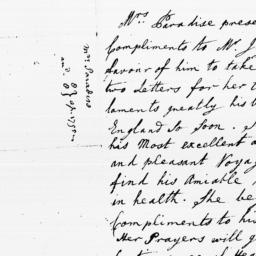 Mrs Paradise prese
Compliments to Mr. J
favour of him to take
two Letters for her
laments greatly his
England so soon.
his Most excellent a
and pleasant Voyag
find his Amiable
in health. She be
Compliments to him
Her Prayers will g
Mrs Paradise